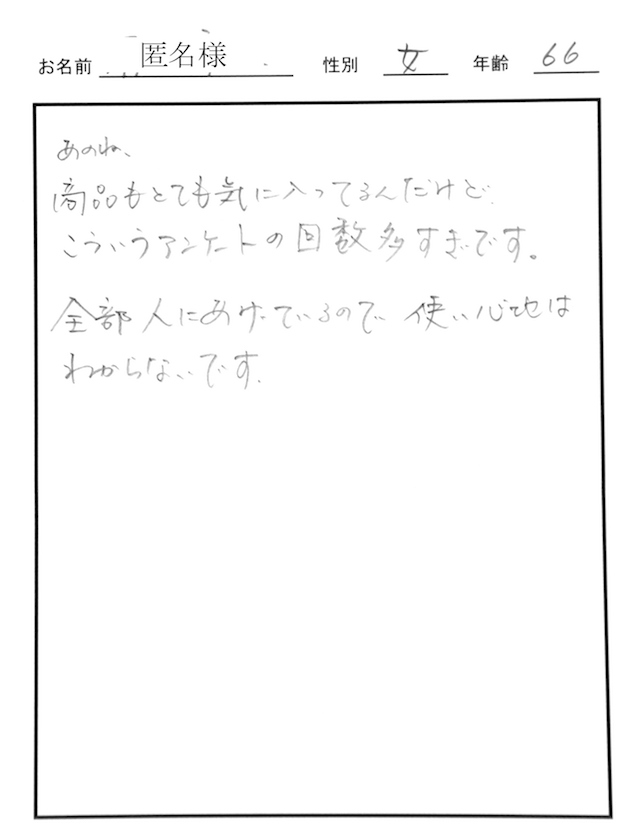 お名前 匿名様 性別 女 年齢 66
あのね、
商品もとても気に入ってるんだけど、
こういうアンケートの回数多すぎです。
全部人にあげているので、使い心地は
わからないです。